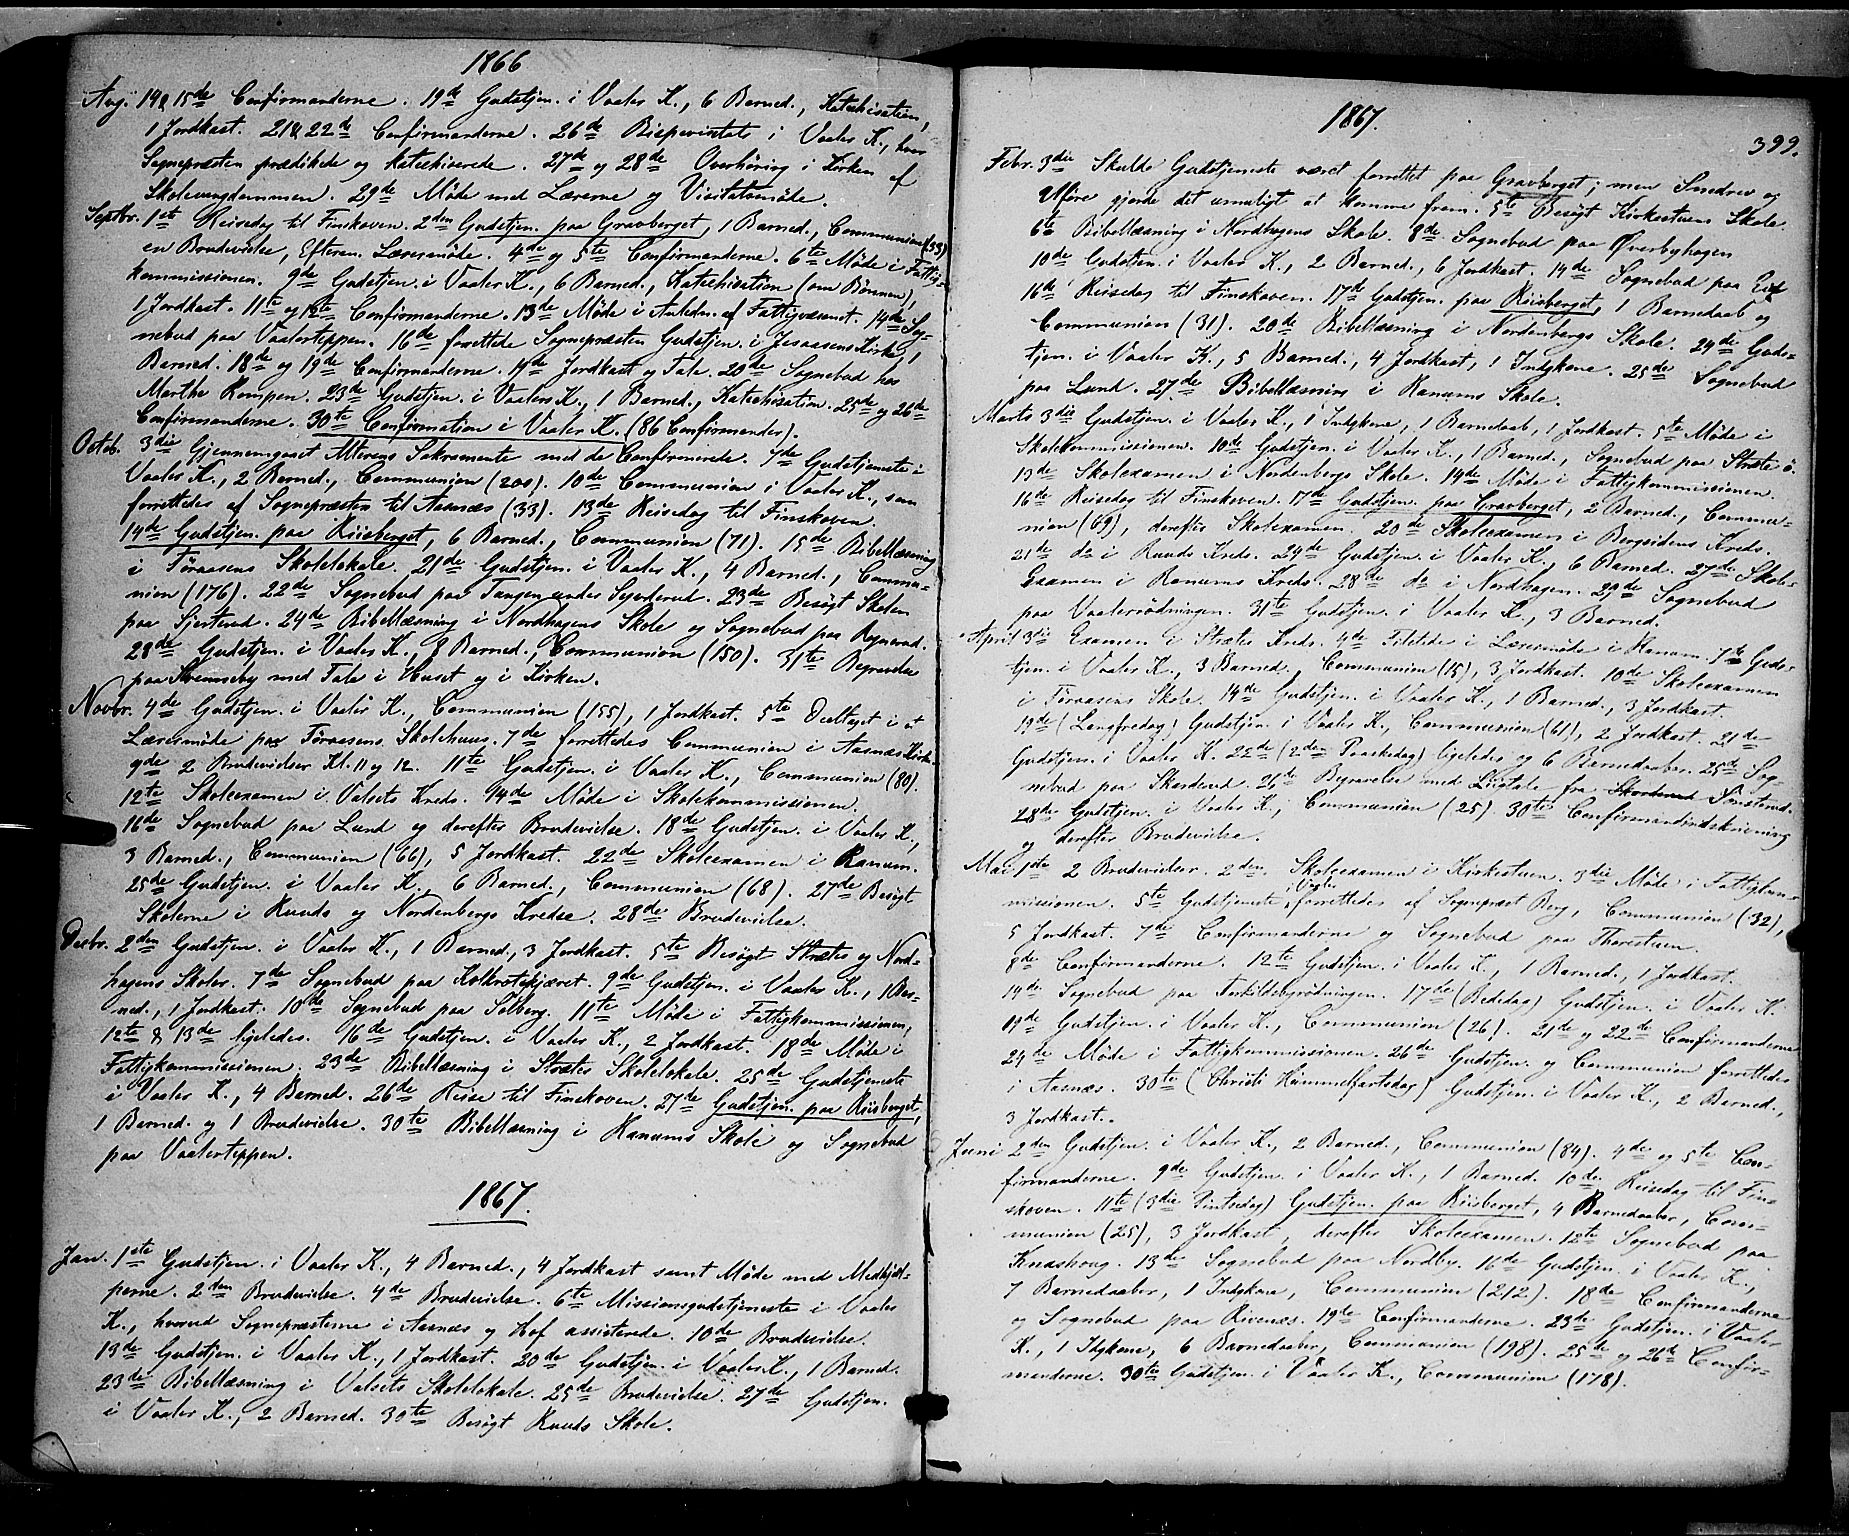 1866
Aug. 14 & 15de Confirmanderne. 19de Gudstjen. i Vaaler K., 6 Barned., Katechisation,
1 Jordkast. 21 & 22de Confirmanderne. 26de Bispevisitats i Vaaler K., hvor
Sognepræsten prædikede og katechiserede. 27de og 28de Overhøring i Kirken af
Skoleungdommen. 29de Møde med Lærerne og Visitatsmøde.
Septbr. 1st Reisedag til Finskoven. 2den Gudstjen. paa Gravberget, 1 Barned., Communion (33)
en Brudevielse, Efterm. Læreramøde. 4de og 5te Confirmanderne. 6te Møde i Fattig-
kommissionen. 9de Gudstjen. i Vaaler K., 6 Barned., Katechisation (om Bönnen),
1 Jordkast. 11te og 12te Confirmanderne. 13de Møde i Anledn. af Fattigvæsenet. 14de Sog-
nebud paa Vaalerteppen. 16de forrettede Sognepræsten Gudstjen. i Jesaasens Kirke, 1
Barned. 18de og 19de Confirmanderne. 19de Jordkast og Tale. 20de Sognebud hos
Marthe Kompen. 23de Gudstjen. i Vaalers K., 1 Barned., Katechisation. 25de og 26de
Confirmanderne. 30te Confirmation i Vaaler K. (86 Confirmander).
Octob. 3die Gjennemgaaet Alterens Sakramente med de Confirmerede. 7de Gudstjeneste i
Vaaler K., 2 Barned., Communion (200). 10de Communion i Vaaler K., som
forrettedes af Sognepræsten til Aasnæs (33). 13de Reisedag til Finskoven.
14de Gudstjen. paa Risberget, 6 Barned., Communion (71). 15de Bibellæsning
i Töraasens Skolelokale. 21de Gudstjen. i Vaaler K., 4 Barned., Commu-
nion (176). 22de Sognebud paa Tangen under Sjurderud. 23de Besögt Skolen
paa Sjerterud. 24de Bibellæsning i Nordhagens Skole og Sognebud paa
28de Gudstjen. i Vaaler K., 8 Barned., Communion (150). 31te Begravelse
paa med Tale i Huset og i Kirken.
Novbr. 4de Gudstjen. i Vaaler K., Communion (155), 1 Jordkast. 5te Deeltaget i et
Lærermöde paa Töraasens Skolehuus. 7de forrettedes Communion i Aasnæs Kirke.
9de 2 Brudevielser Kl. 11 og 12. 11te Gudstjen. i Vaaler K., Communion (80).
12te Skoleexamen i Valsets Kreds. 14de Möde i Skolekommissionen.
16de Sognebud paa Lund og derefter Brudevielse. 18de Gudstjen. i Vaaler K.,
3 Barned., Communion (66), 5 Jordkast. 22de Skoleexamen i Ranum.
25de Gudstjen. i Vaaler K., 6 Barned., Communion (68). 27de Besögt
Skolerne i Ruuds og Nordenbergs Kredse. 28de Brudevielse.
Decbr. 2den Gudstjen. i Vaaler K., 1 Barned., 3 Jordkast. 5te Besögt Stræte og Nord-
hagens Skoler. 7de Sognebud paa Kolkrotskjæret. 9de Gudstjen. i Vaaler K., 1 Bar-
ned., 1 Jordkast. 10de Sognebud paa Solberg. 11te Möde i Fattigkommissionen,
12te & 13de ligeledes. 16de Gudstjen. i Vaaler K., 2 Jordkast. 18de Möde i
Fattigkommissionen. 23de Bibellæsning i Strætes Skolelokale. 25de Gudstjeneste
i Vaaler K., 4 Barned. 26de Reise til Finskoven. 27de Gudstjen. paa Risberget,
1 Barned. og 1 Brudevielse. 30te Bibellæsning i Ranums Skole og Sognebud
paa Vaalerteppen.
1867.
Jan. 1ste Gudstjen. i Vaaler K., 4 Barned., 4 Jordkast samt Möde med Medhjæl-
perne. 2den Brudevielse. 4de Brudevielse. 6te Missionsgudstjeneste i Vaaler
K., hvorved Sognepræsterne i Aasnæs og Hof assisterede. 10de Brudevielse.
13de Gudstjen. i Vaaler K., 1 Jordkast. 20de Gudstjen. i Vaaler K., 1 Barned.
23de Bibellæsning i Valsets Skolelokale. 25de Brudevielse. 27de Gudstjen.
i Vaaler K., 2 Barned. 30te Besögt Ruuds Skole.
1867.
399.
Febr. 3die Skulde Gudstjeneste været forrettet paa Gravberget; men Snedrev og
Uföre gjorde det umuligt at komme frem. 5te Besögt Kirkestuens Skole.
6te Bibellæsning i Nordhagens Skole. 8de Sognebud paa Øverbyhagen
10de Gudstjen. i Vaaler K., 2 Barned., 6 Jordkast. 14de Sognebud paa Eid
16de Reisedag til Finskoven. 17de Gudstjen. paa Risberget, 1 Barnedaab og
Communion (31). 20de Bibellæsning i Nordenbergs Skole. 24de Guds-
tjen. i Vaaler K., 5 Barned., 4 Jordkast, 1 Indgkone. 25de Sognebud
paa Lund. 27de Bibellæsning i Ranums Skole.
Marts 3die Gudstjen. i Vaaler K., 1 Indgkone, 1 Barnedaab, 1 Jordkast. 5te Møde i
Skolekommissionen. 10de Gudstjen. i Vaaler K., 1 Barned., Sognebud paa Stræte ö.
13de Skoleexamen i Nordenbergs Skole. 14de Möde i Fattigkommissionen.
16de Reisedag til Finskoven. 17de Gudstjen. paa Gravberget, 2 Barned., Commu-
nion (69), derefter Skoleexamen. 20de Skoleexamen i Bergsidens Kreds.
21de do i Ruuds Kreds. 24de Gudstjen. i Vaaler K., 6 Barned. 27de Skole-
Examen i Ranums Kreds. 28de do i Nordhagen. 29de Sognebud
paa Vaalerrödningen. 31te Gudstjen. i Vaaler K., 3 Barned.
April 3die Examen i Stræte Kreds. 4de Tilstede i Læreremöde i Ranum. 7de Guds-
tjen. i Vaaler K., 3 Barned., Communion (15), 3 Jordkast. 10de Skoleexamen
i Töraasens Skole. 14de Gudstjen. i Vaaler K., 1 Barned., 3 Jordkast.
19de (Langfredag) Gudstjen. i Vaaler K., Communion (61), 2 Jordkast. 21de
Gudstjen. i Vaaler K. 22de (2den Paaskedag) ligeledes og 6 Barnedaaber. 25de Sog-
nebud paa Skarderud. 26de Begravelse med Liigtale fra Skarderud Sönsterud.
28de Gudstjen. i Vaaler K., Communion (25). 30te Confirmandindskrivning
og derefter Brudevielse.
Mai 1ste 2 Brudevielser. 2den Skoleexamen i Kirkestuen. 3die Möde i Fattigkom-
missionen. 5te Gudstjeneste i Vaaler forrettedes af Sognepræst Berg, Communion (32),
5 Jordkast. 7de Confirmanderne og Sognebud paa Thorestuen.
8de Confirmanderne. 12te Gudstjen. i Vaaler K., 1 Barned., 1 Jordkast.
14de Sognebud paa Torkildsbyrødningen. 17de (Bededag) Gudstjen. i Vaaler K.
19de Gudstjen. i Vaaler K., Communion (26). 21de og 22de Confirmanderne
24de Möde i Fattigkommissionen. 26de Gudstjen. og Communion forrettedes
i Aasnæs. 30te (Christi Himmelfartsdag) Gudstjen. i Vaaler K., 2 Barned.,
3 Jordkast.
Juni 2den Gudstjen. i Vaaler K., 2 Barned., Communion (84). 4de og 5te Con-
firmanderne. 9de Gudstjen. i Vaaler K., 1 Barned. 10de Reisedag til Fin-
skoven. 11te (3die Pintsedag) Gudstjen. paa Risberget, 4 Barnedaaber, Com-
munion (25), 3 Jordkast, derefter Skoleexamen. 12te Sognebud paa
Knashoug. 13de Sognebud paa Nordby. 16de Gudstjen. i Vaaler K.,
7 Barnedaaber, 1 Indgkone, Communion (212). 18de Confirmanderne
og Sognebud paa Rivenæs. 19de Confirmanderne. 23de Gudstjen. i Vaaler
K., 1 Idgkone, 6 Barnedaaber, Communion (198). 25de og 26de Confir-
manderne. 30te Gudstjen. i Vaaler K., Communion (178).